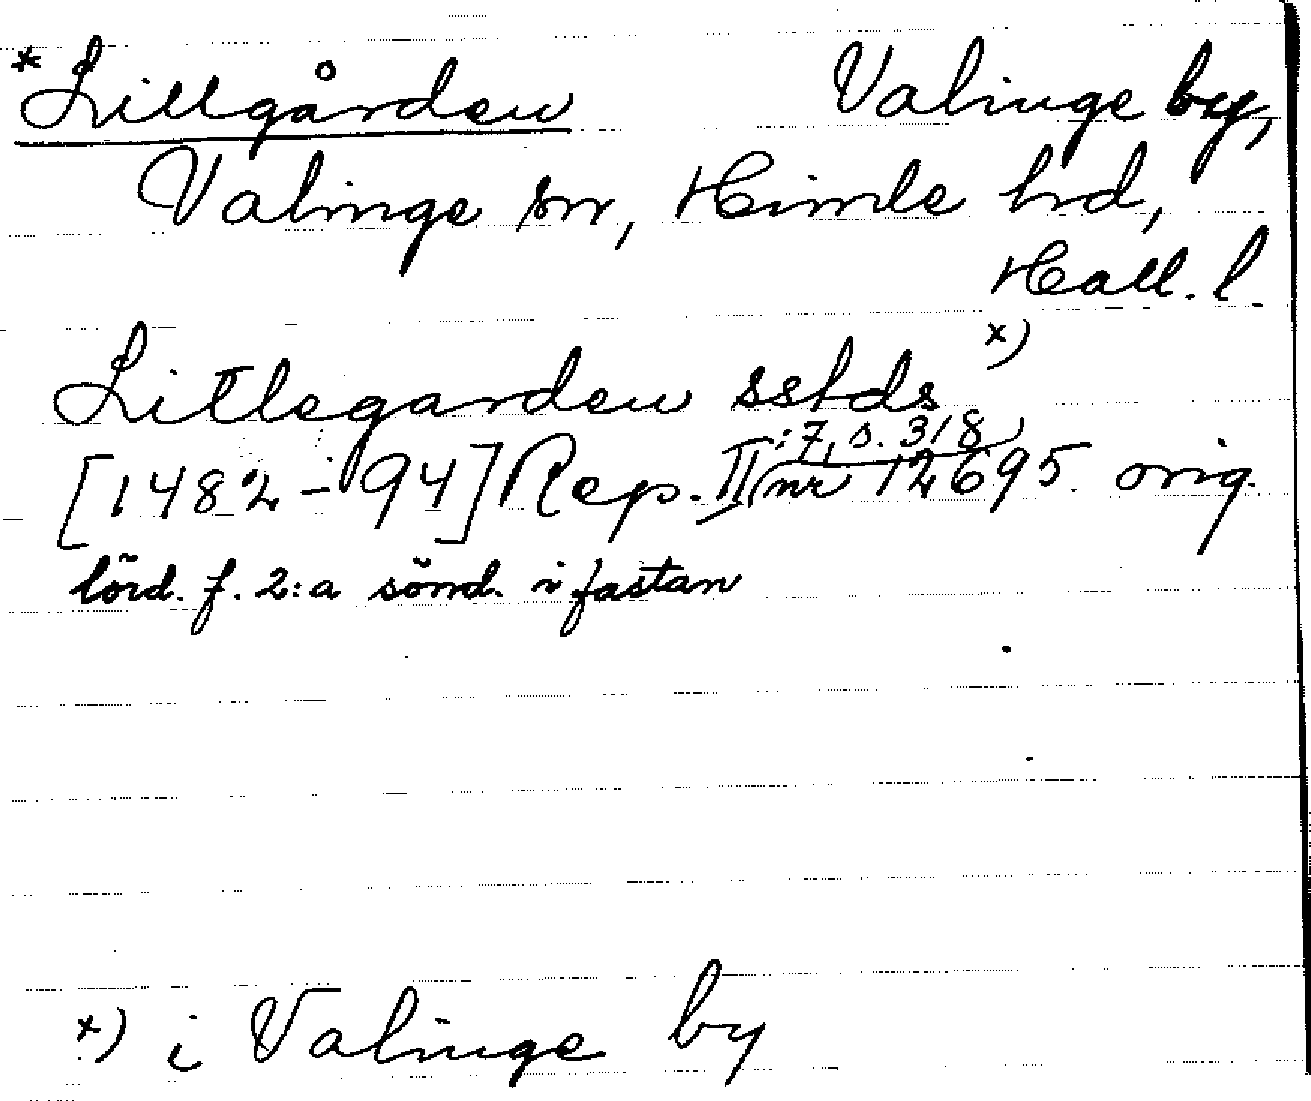 *Lillgården Valinge by,
Valinge sn, Himle hd,
Hall. l.
Litlegarden sstds x)
:7, s. 318
[1482-94] Rep. II nr 12695 orig.
lörd. f. 2:a sönd. i fastan
x) i Valinge by